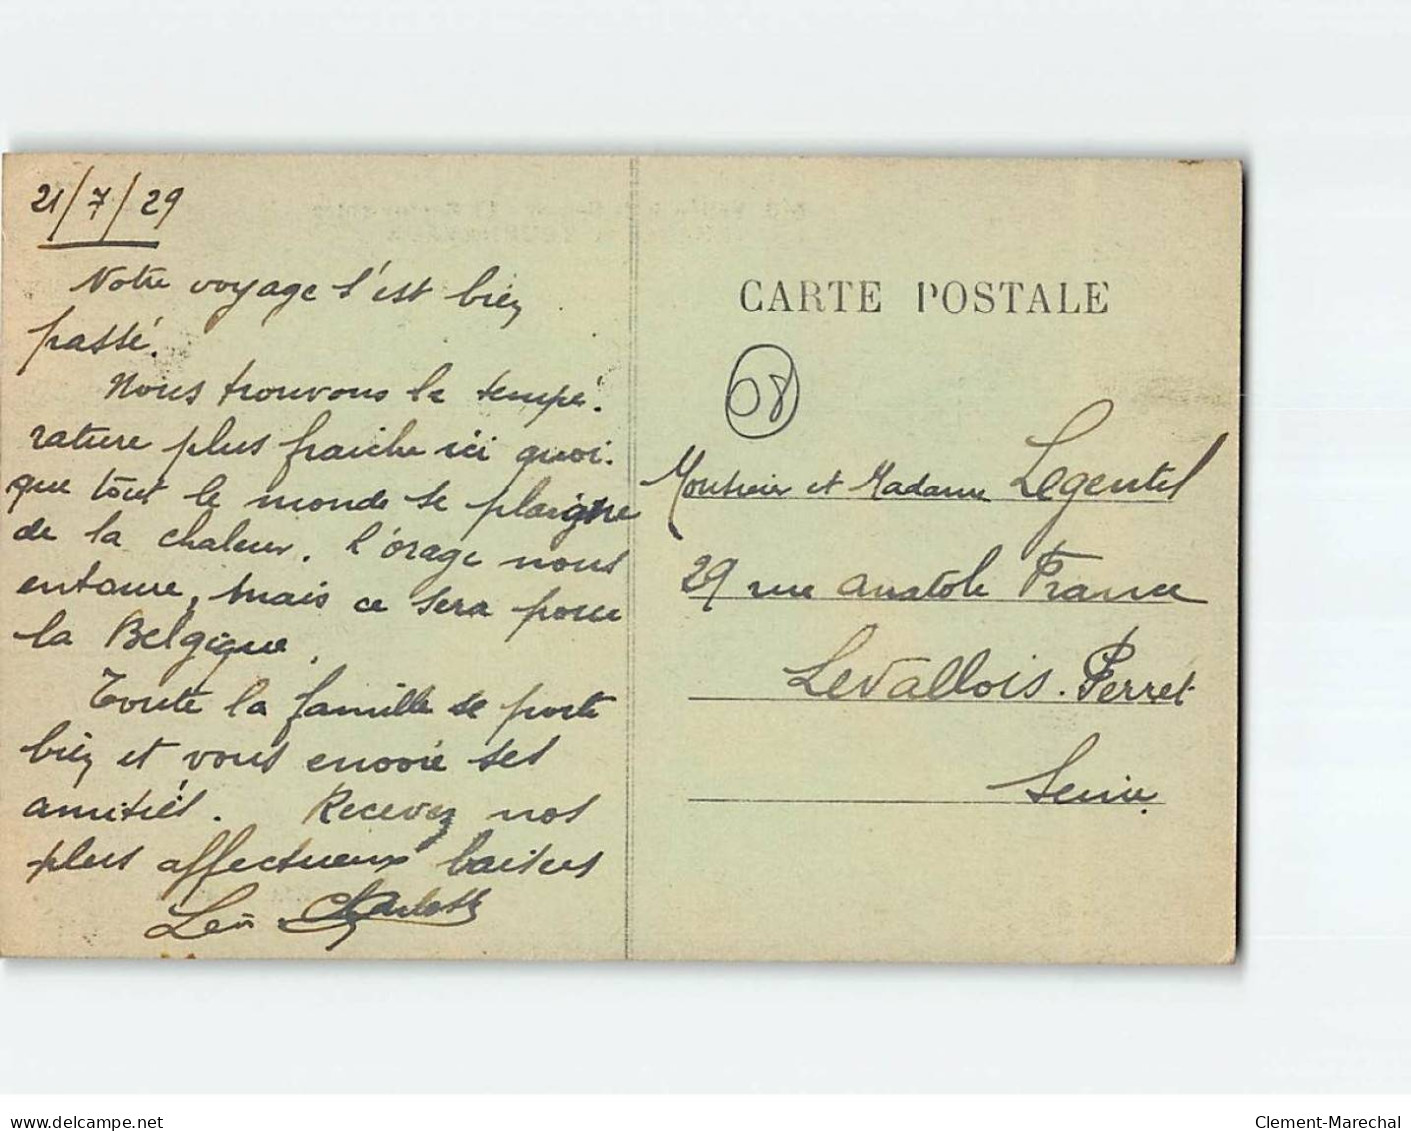 21/7/29
Notre voyage s'est bien
passé.
Nous trouvons la tempé-
rature plus fraiche ici quoi-
que tout le monde se plaigne
de la chaleur. L'orage nous
entoure, mais ce sera pour
la Belgique.
Toute la famille se porte
bien et vous envoie ses
amitiés. Recevez nos
plus affectueux baisers
Léon Charlotte
CARTE POSTALE
08
Monsieur et Madame Legentil
29 rue Anatole France
Levallois-Perret
Seine
delcampe.net
Clement-Marechal